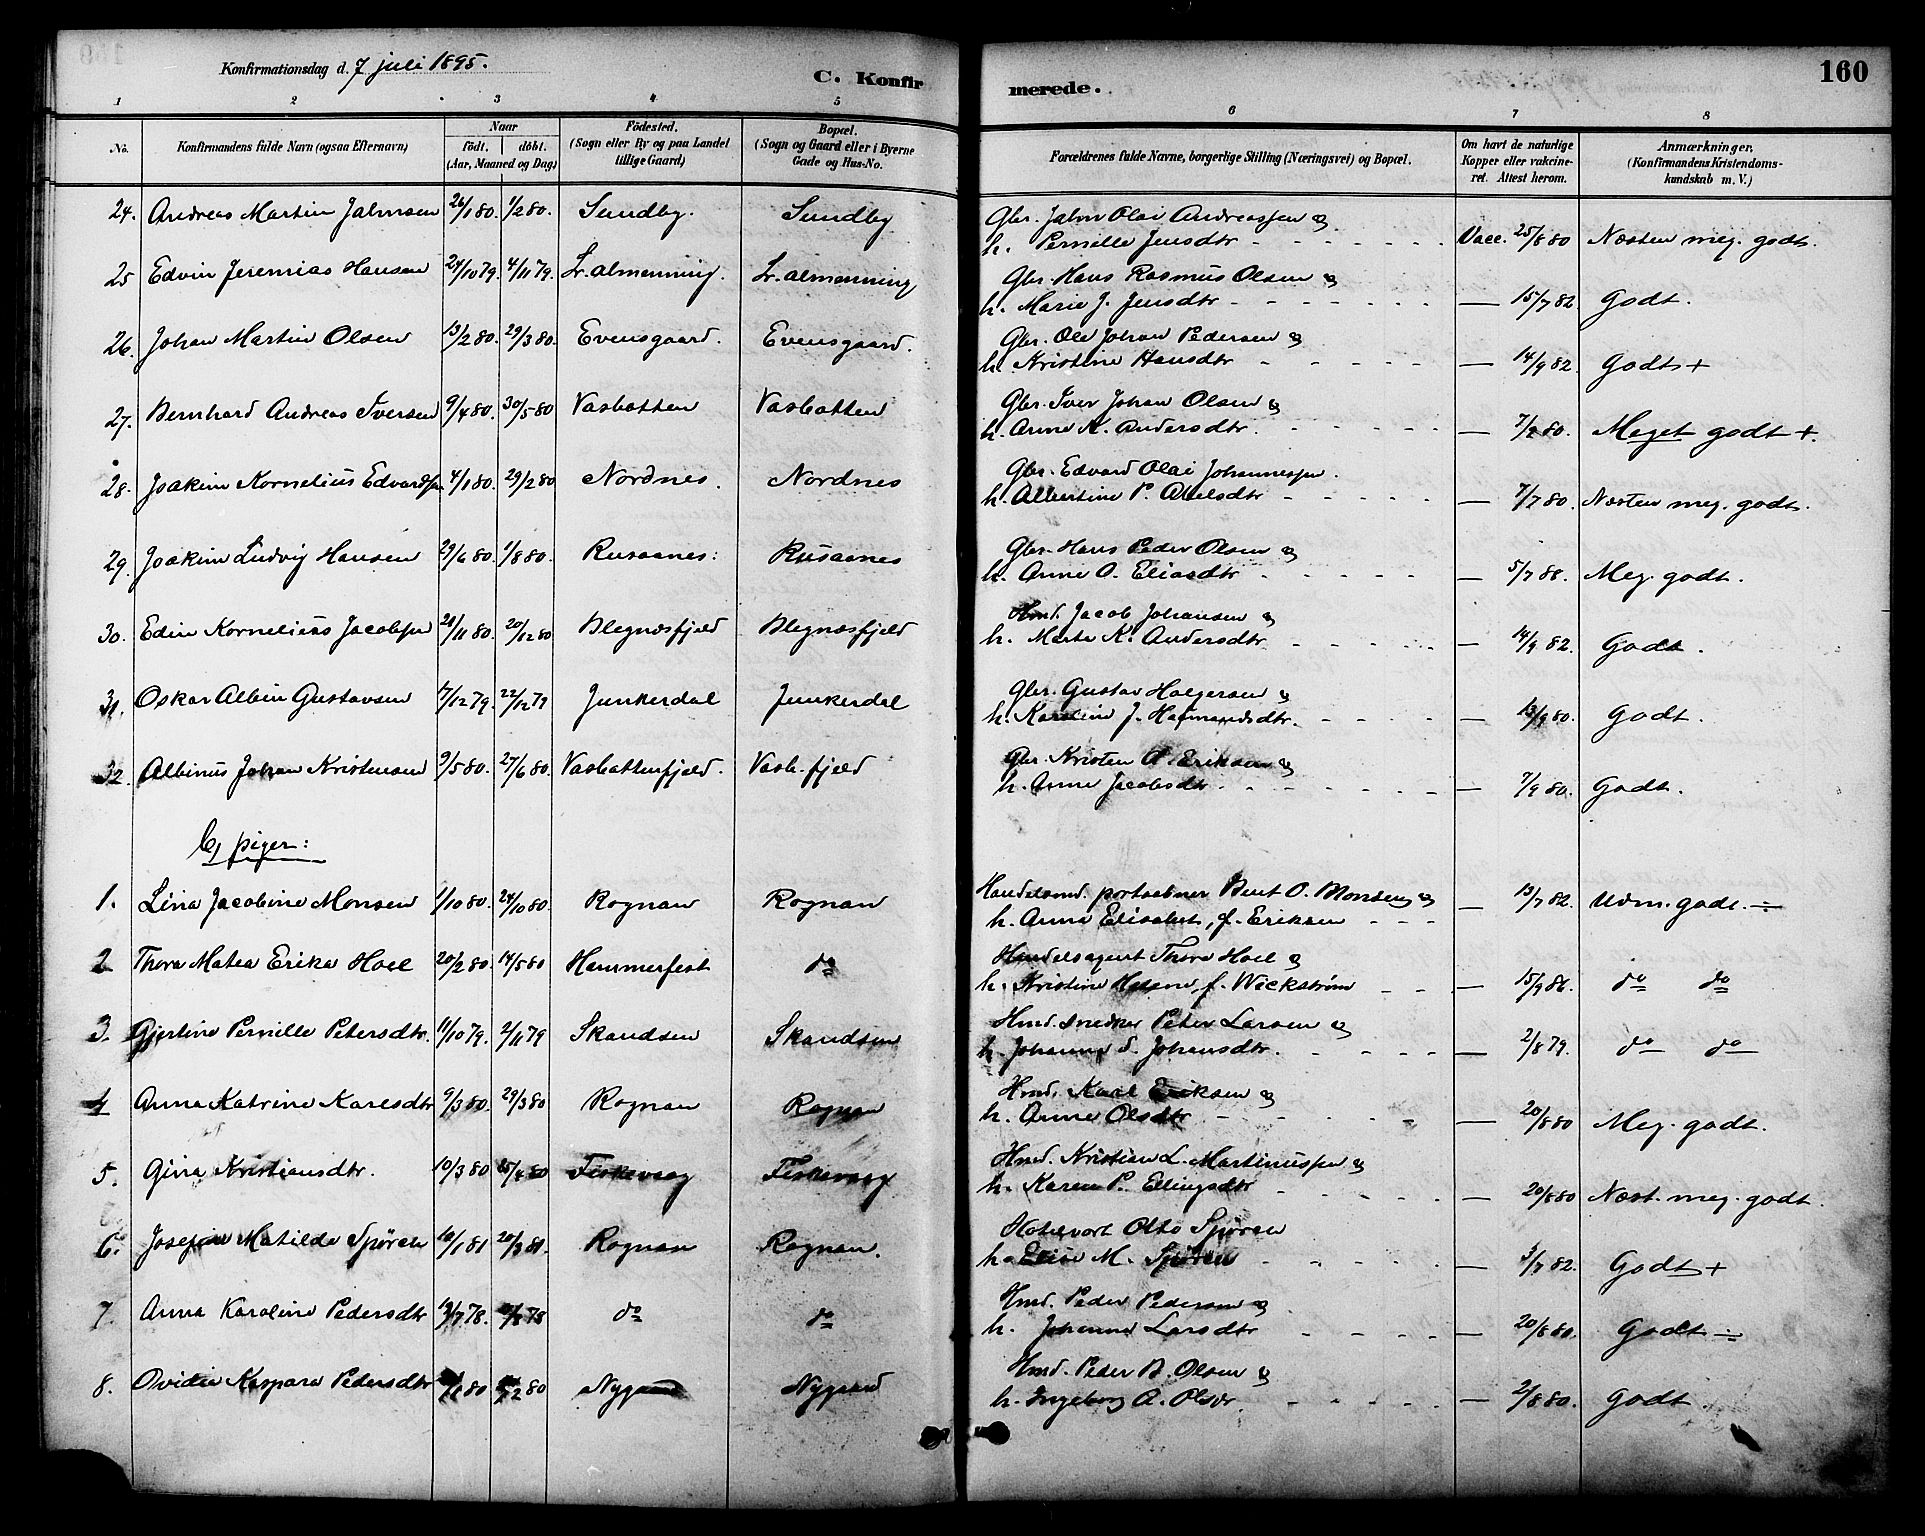 Konfirmationsdag d. 7 juli 1895.
C. Konfirmerede.
160
1 2 3 4 5 6 7 8
No.
Konfirmandens fulde Navn (ogsaa Efternavn)
Naar
födt. döbt.
(Aar, Maaned og Dag)
Födested.
(Sogn eller By og paa Landet
tillige Gaard)
Bopæl.
(Sogn og Gaard eller i Byerne
Gade og Hus-No.
Forældrenes fulde Navne, borgerlige Stilling (Næringsvei) og Bopæl.
Om havt de naturlige
Kopper eller vakcine-
ret. Attest herom.
Anmærkninger.
(Konfirmandens Kristendoms-
kundskab m. V.)
24. Andreas Martin Jahnsen 26/1 80. 1/2 80. Sundby. Sundby Gbr. Jahn Olai Andreassen og
h. Pernille Jensdtr Vacc. 25/8 80 Næsten meg. godt.
25 Edvin Jeremias Hansen 24/10 79. 4/11 79. Sr. almenning. Sr. almenning Gbr. Hans Rasmus Olsen og
h. Marie J. Jensdtr — 15/7 82 Godt.
26. Johan Martin Olsen 13/2 80. 29/3 80. Evensgaard. Evensgaard. Gbr. Ole Johan Pedersen og
h. Kristine Hansdtr — 14/9 82. Godt +
27. Bernhard Andreas Iversen 9/4 80. 30/5 80 Vasbotten Vasbotten Gbr. Iver Johan Olsen og
h. Anne K. Andersdtr. — 7/7 80. Meget godt +.
28. Joakim Kornelius Edvardsen 4/1 80. 29/2 80 Nordnes. Nordnes Gbr. Edvard Olai Johannessen.
h. Albertine P. Abelsdtr — 7/7 80. Næsten meg. godt.
29. Joakim Ludvig Hansen 29/6 80. 1/8 80. Rusaanes: Rusaanes Gbr. Hans Peder Olsen og
h. Anne O. Eliasdtr — 5/7 88. Meg. godt.
30. Edin Kornelius Jacobsen 28/11 80. 20/12 80 Blegnæsfjeld Blegnæsfjeld Hmd. Jacob Johansen og
h. Marte K. Andersdtr. — 14/9 82. Godt.
31. Oskar Albin Gustavsen 17/12 79. 22/12 79 Junkerdal Junkerdal Gbr. Gustav Holgersen og
h. Karoline J. Hagmannsdtr. — 13/9 80. Godt.
32. Albinus Johan Kristensen 9/5 80. 27/6 80. Vasbottenfjeld. Vasb. fjeld Gbr. Kristen A. Eriksen og
h. Anne Jacobsdtr. — 7/9 80. Godt.
b, piger:
1. Lina Jacobine Monsen 1/10 80. 24/10 80. Rognan Rognan Handelsmd. postaabner Bent O. Monsen og
h. Anna Elisabet, f. Eriksen — 13/7 82. Udm. godt. ÷
2 Thora Matea Erika Hoel 20/2 80. 14/5 80 Hammerfest do Handelsagent Thore Hoel og
h. Kristine Helene, f. Wickstrøm — 15/9 86. do do
3. Gjertine Pernille Petersdtr. 11/10 79. 2/11 79 Skandsen Skandsen Hmd. snedker Peter Larsen og
h. Johanne d. Johansdtr. — 2/8 79. do do
4 Anna Katrine Karlsdtr 9/3 80. 29/3 80 Rognan Rognan Hmd. Karl Eriksen og
h. Anne Olsdtr — 20/8 80 Meg. godt.
5. Gina Kristiansdtr. 10/3 80 15/4 80 Fiskevaag Fiskevaag Hmd. Kristian L. Martinussen og
h. Karen P. Ellingsdtr — 20/8 80 Næst. meg. godt.
6. Josefine Matilde Spören 10/1 81 20/3 81. Rognan Rognan. Hotelvert Otto Spören
h. Elise M. Spören — 3/7 82. Godt +
7. Anna Karoline Pedersdtr 19/7 78. /8 78 do do Hmd. Peder Pedersen og
h. Johanne Larsdtr — 20/8 80. Godt ÷
8. Ovidia Kaspara Pedersdtr /1 80 /2 80 Nygaard Nygaard Hmd. Peder B. Olsen og
h. Ingeborg A. Olsdr. — 2/8 80. Godt.